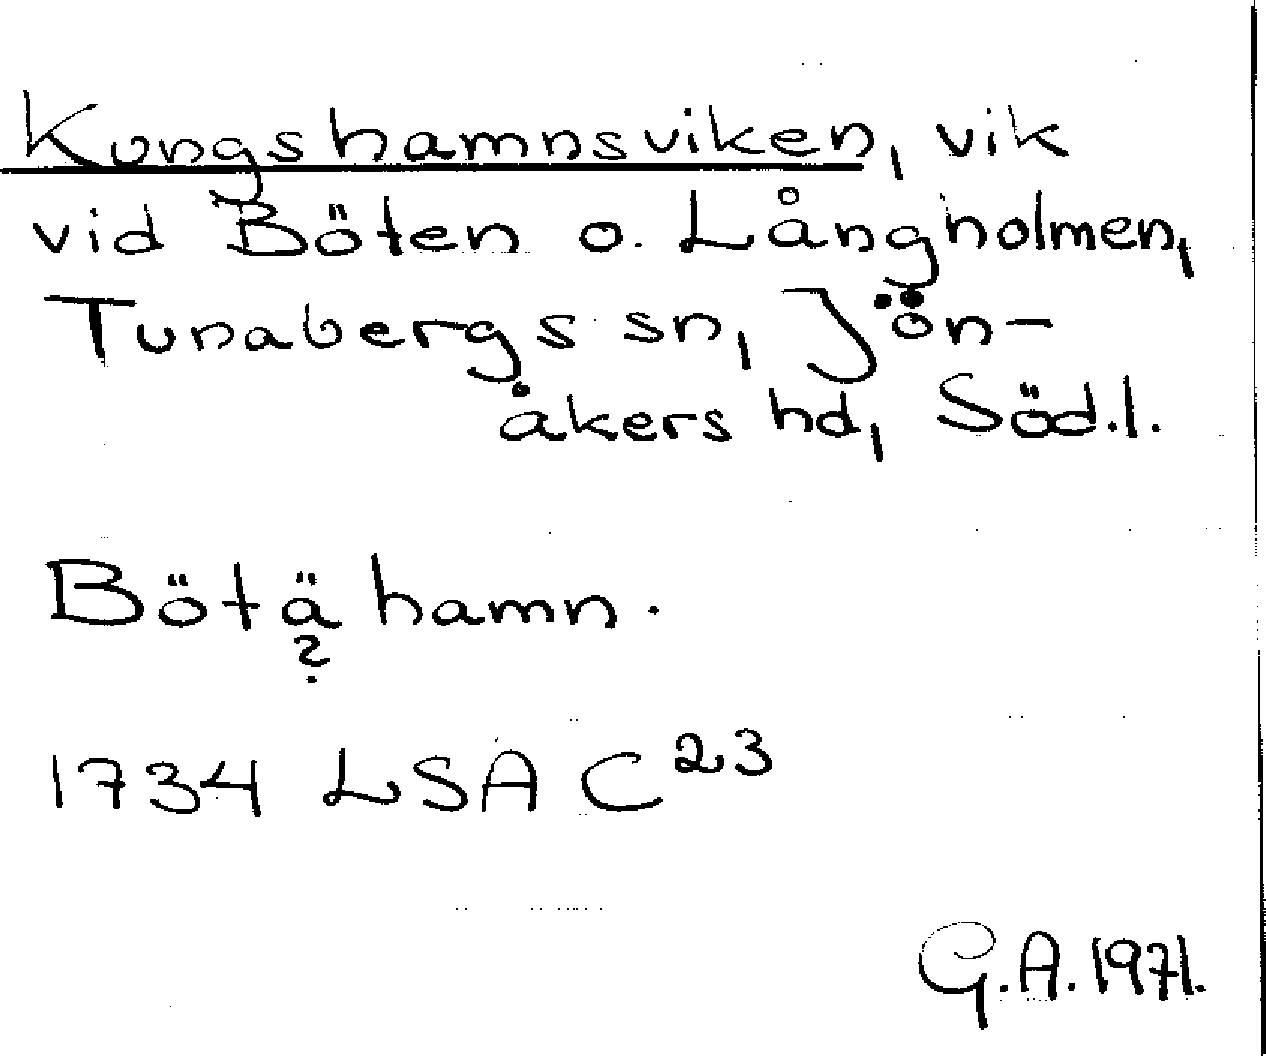 Kungshamnsviken, vik
vid Böten o. Långholmen,
Tunabergs sn, Jön-
åkers hd, Söd.l.
Bötä hamn.
?
1734 LSA C²³
G.A. 1971.